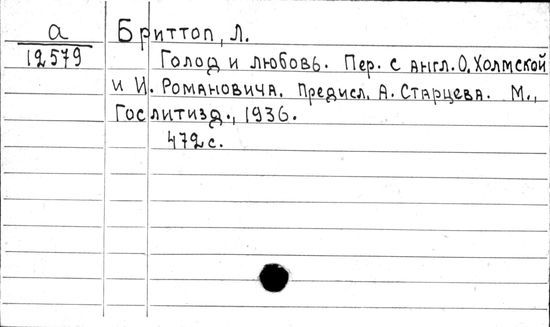 а
12579
Бриттоп, Л.
Голод и любовь. Пер. с англ. О. Холмской
и И. Романовича. Предисл. А. Старцева. М.,
Гослитизд., 1936.
472 с.